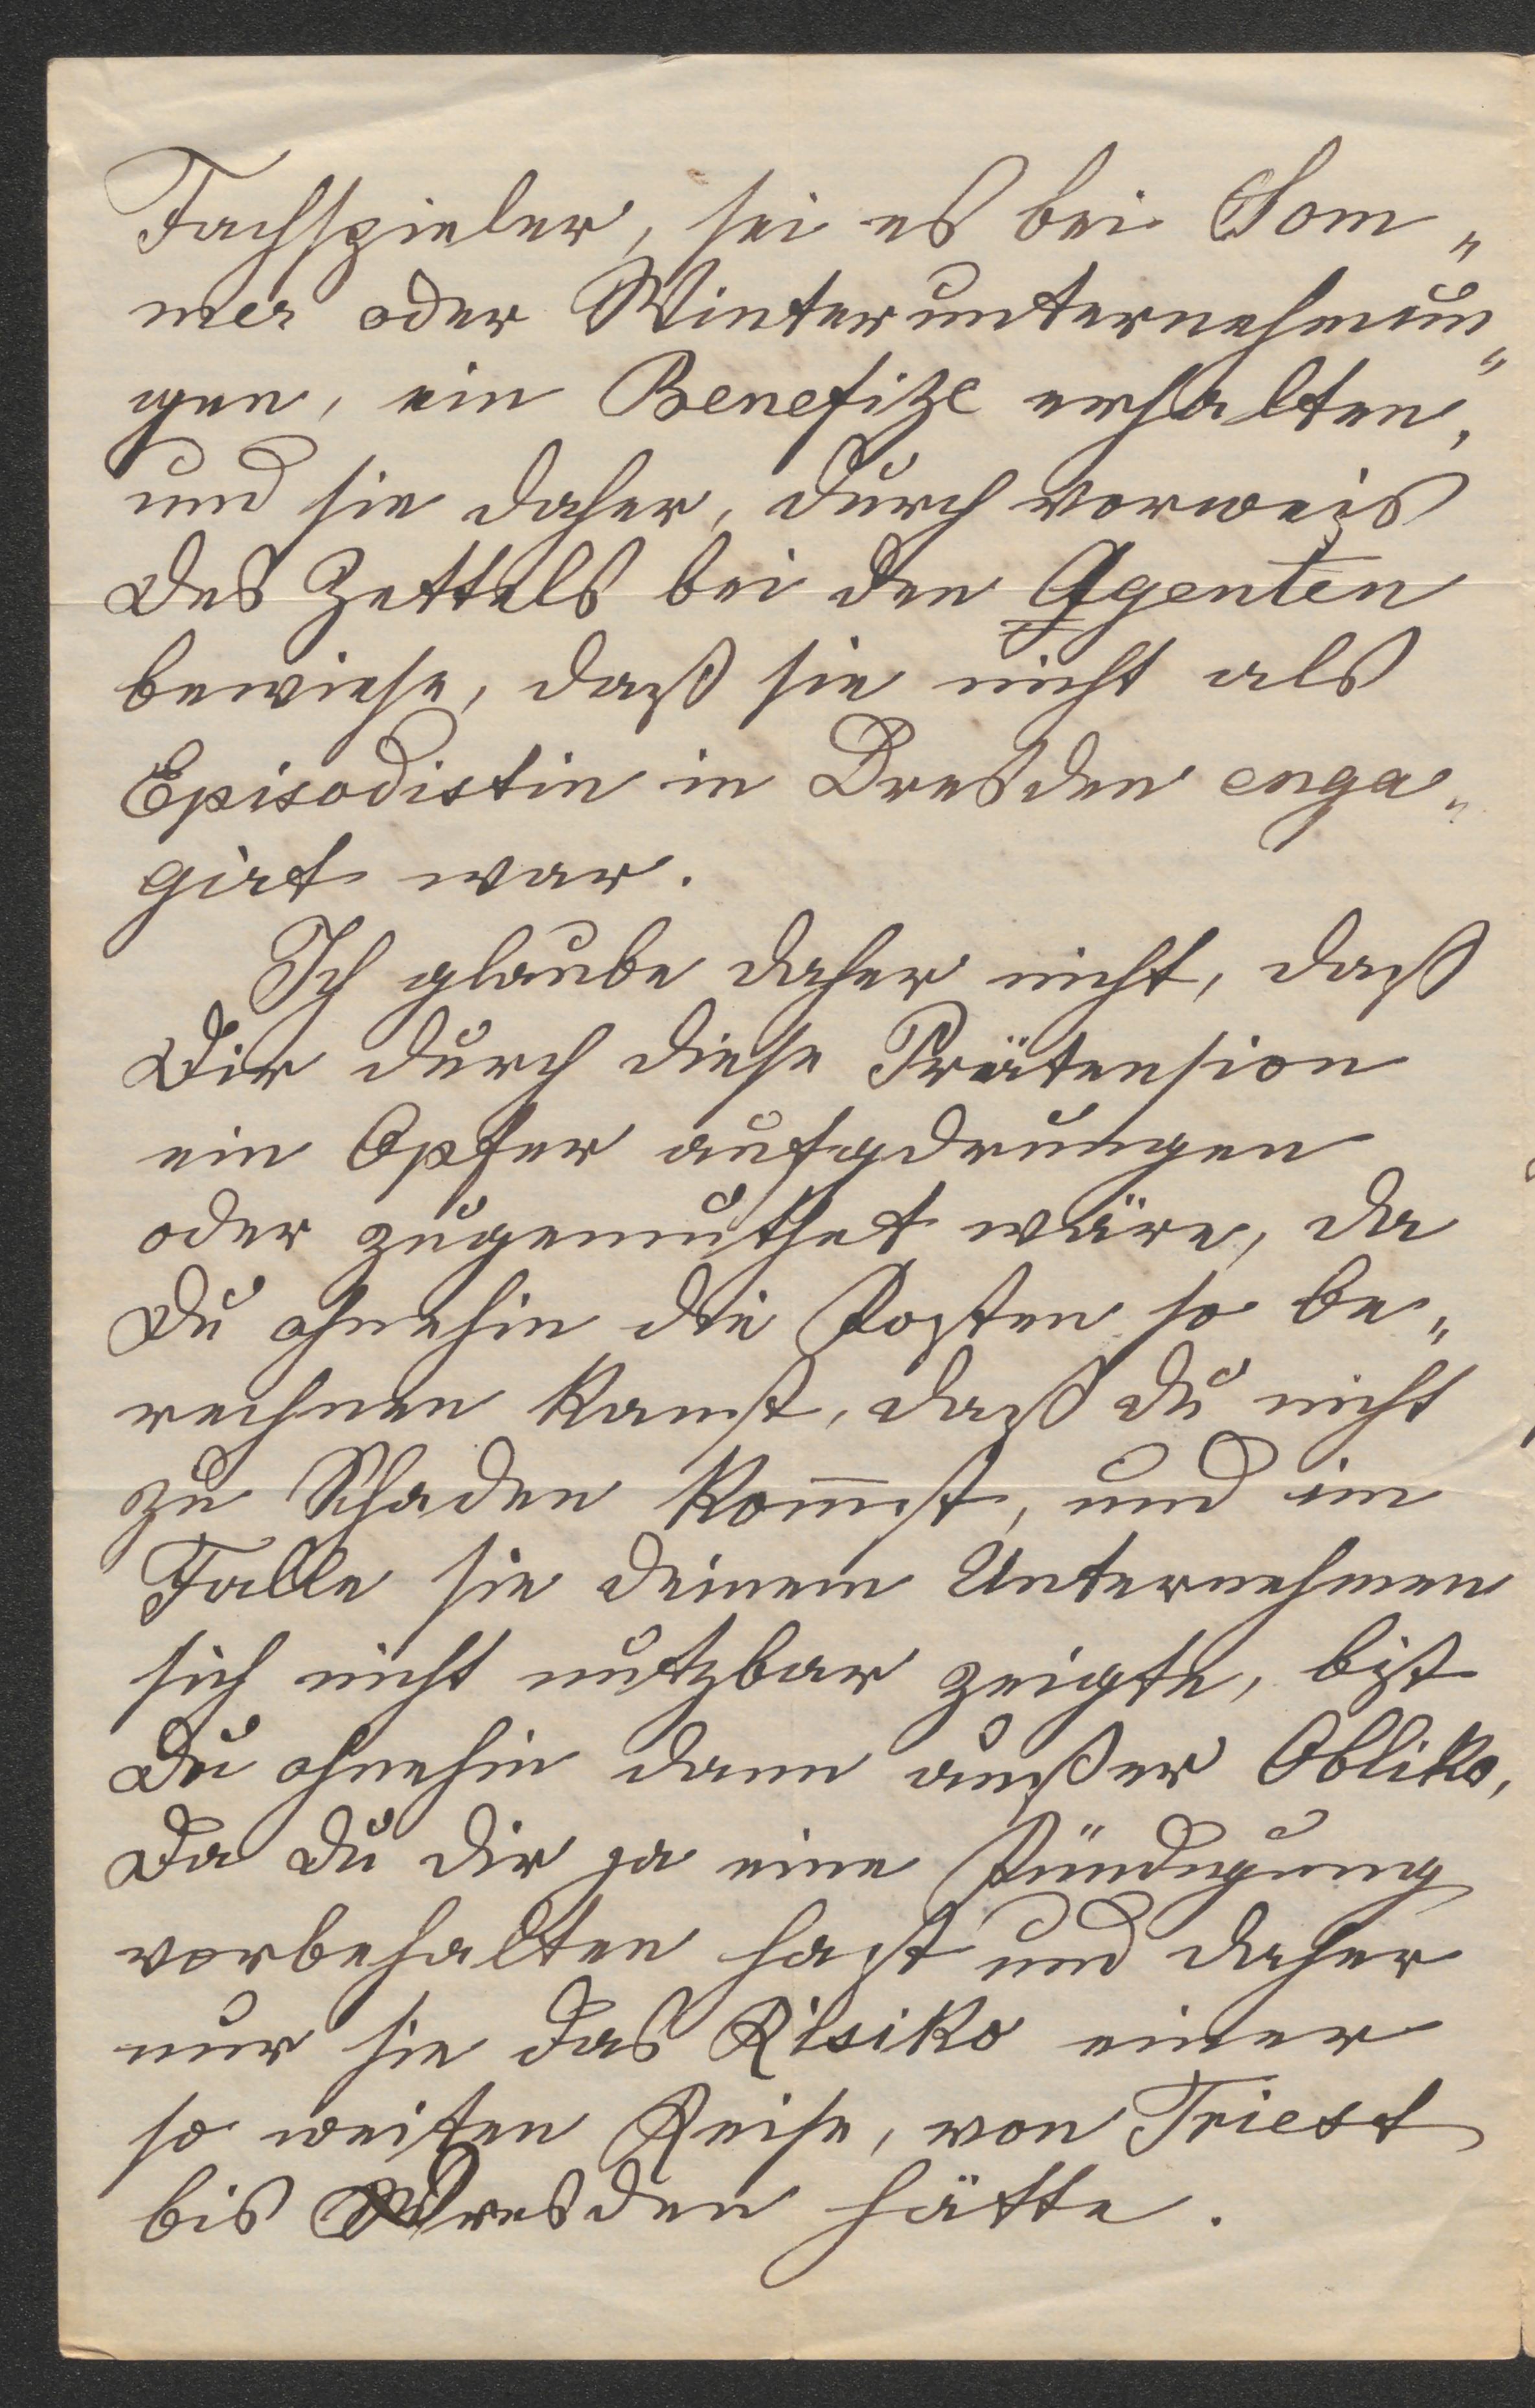 Fachspieler, sei es bei Som„
mer oder Winterunternehmun„
gen, ein Benefize erhalten,
und sie daher, durch vorweis
des Zettels bei den Agenten
bewiese, daß sie nicht als
Episodistin in Dresden enga„
girt war.
Ich glaube daher nicht, daß
Dir durch diese Prätension
ein Opfer aufgdrungen
oder zugemuthet wäre, da
Du ohnehin die Kosten so be„
rechnen kanst, daß du nicht
zu Schaden kom̅st, und im
Falle sie deinem Unternehmen
sich nicht nutzbar zeigte, bist
Du ohnehin dann außer Obliko,
Da du dir ja eine Kündigung
vorbehalten hast und daher
nur sie das Risiko einer
so weiten Reise, von Triest
bis Dresden hätte.